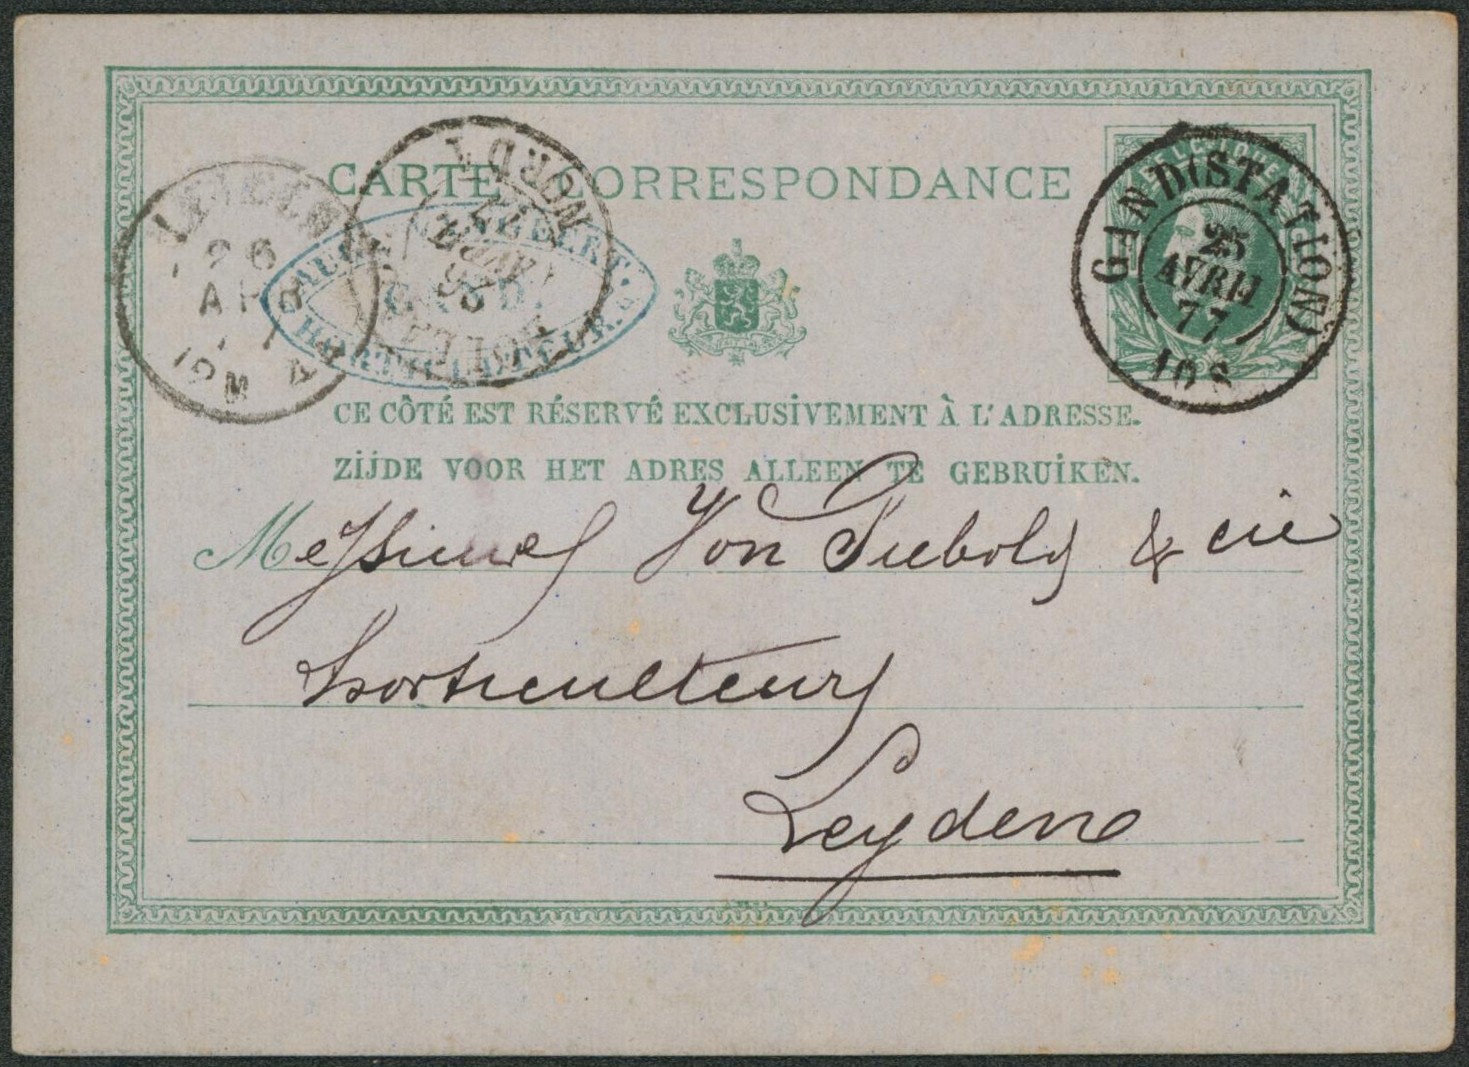 CARTE CORRESPONDANCE
BELGIQUE
GAND (STATION)
25
AVRIL
77
10 S
NORD 1
26
LEIDEN
26
APR
77
HORTICULTEUR.
CE CÔTÉ EST RÉSERVÉ EXCLUSIVEMENT À L'ADRESSE.
ZIJDE VOOR HET ADRES ALLEEN TE GEBRUIKEN.
Messieurs Von Siebold & cie
horticulteurs
Leydene